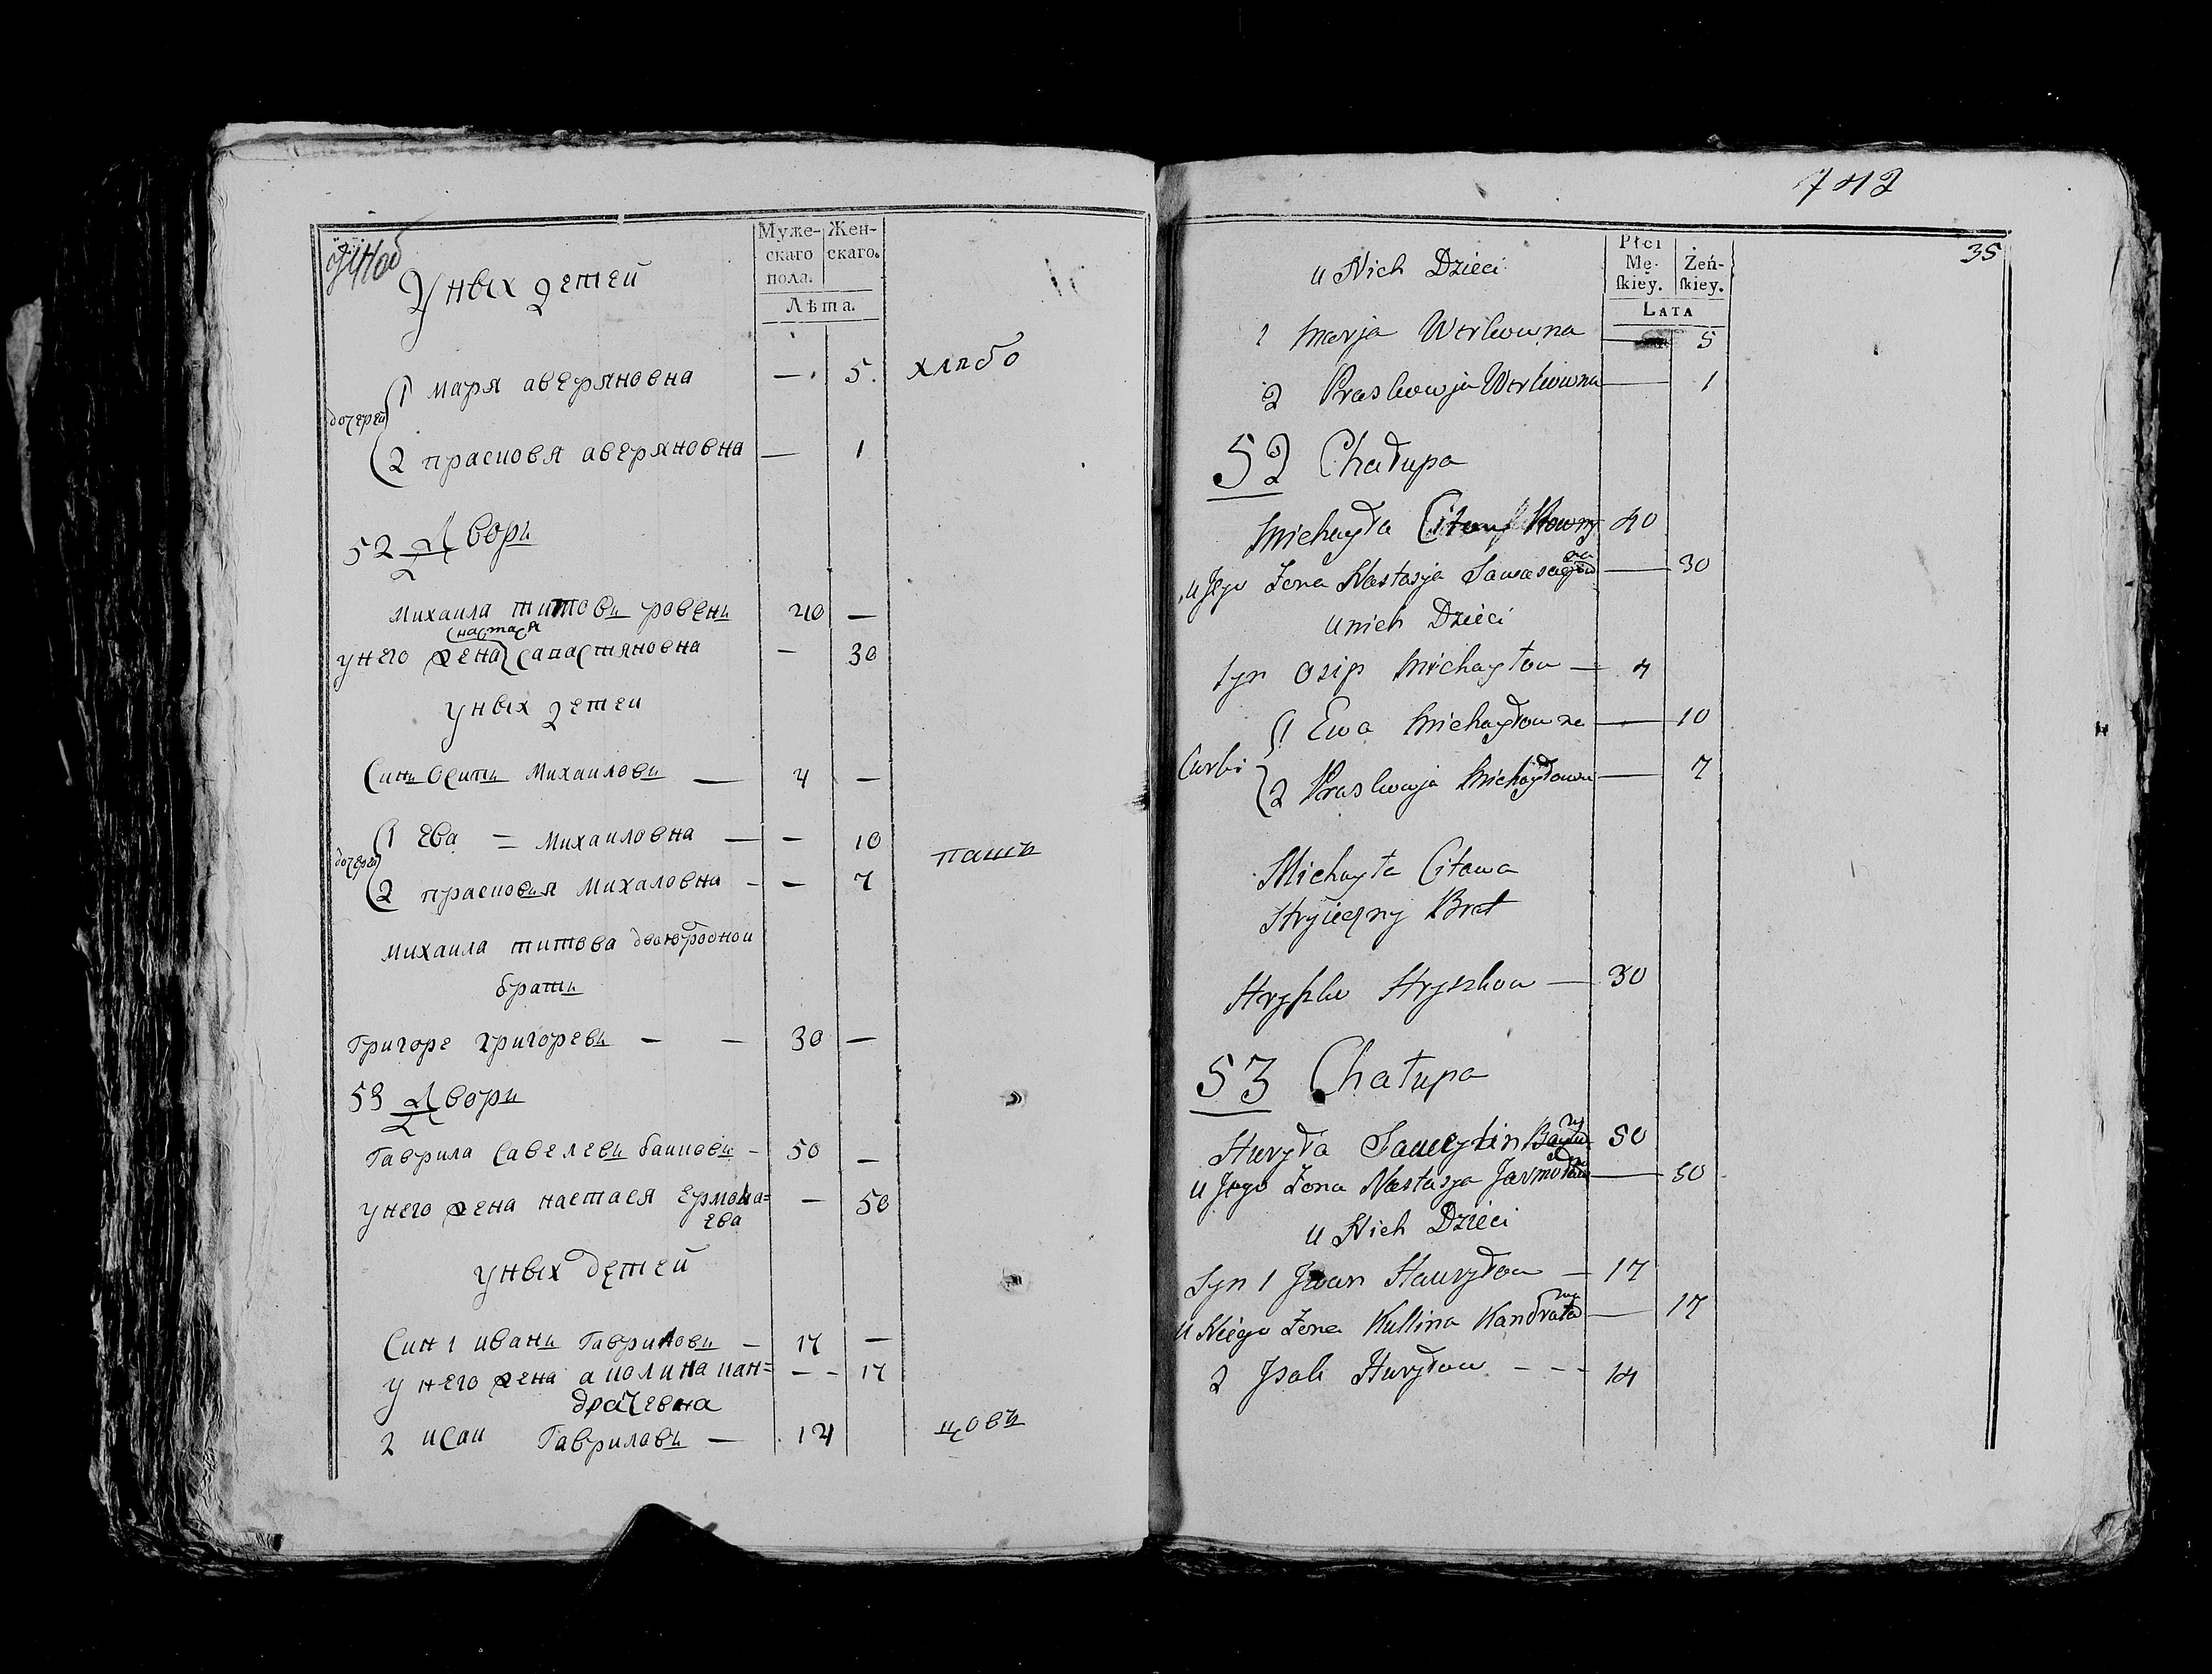 Муже-
скаго
пола.
Жен-
скаго.
Лѣта.
У ныхъ детей
дочерей
1 маря аверяновна — 5
хлѣбо
2 прасковя аверяновна — 1
52 Дворъ
Михаила титовъ ровенъ 40 —
настася
у него жена савастяновна — 30
у ныхъ детей
Синъ Осипъ Михаиловъ — 4 —
дочерей
1 Ева = Михаиловна — — 10
пашъ
2 прасковия Михаловна - — 7
Михаила титова двоюродной
братъ
Григоре григоревъ — — 30 —
53 Дворъ
Гаврила Савелевъ 50 —
у него жена настася Ермола=
ева — 50
у ныхъ детей
Син 1 иванъ Гавриловъ — 17 —
у него жена аколина кан=
дратевна — - 17
2 исаи Гавриловъ — 14
742
35
Płci
Mę-
ſkiey.
Żeń-
ſkiey.
LATA
u Nich Dzieci
1 Marja Werkowna — 5
2 Praskowja Werkowna — 1
52 Chałupa
Michayła 40
u Jego Żona Nastasja — 30
u nich Dzieci
Syn Osip Michayłow — 4
1 Ewa Michayłowna — 10
Curki
2 Praskowja Michayłowna — 7
Michayła Citowa
Stryieczny Brat
Hryszko Hryszkow — 30
53 Chałupa
Hauryła 50
u Jego Żona Nastasja — 50
u Nich Dzieci
Syn 1 Jwan Hauryłow — 17
u Niego Żona Kullina — 17
2 Jsak Hauryłow - - - 14